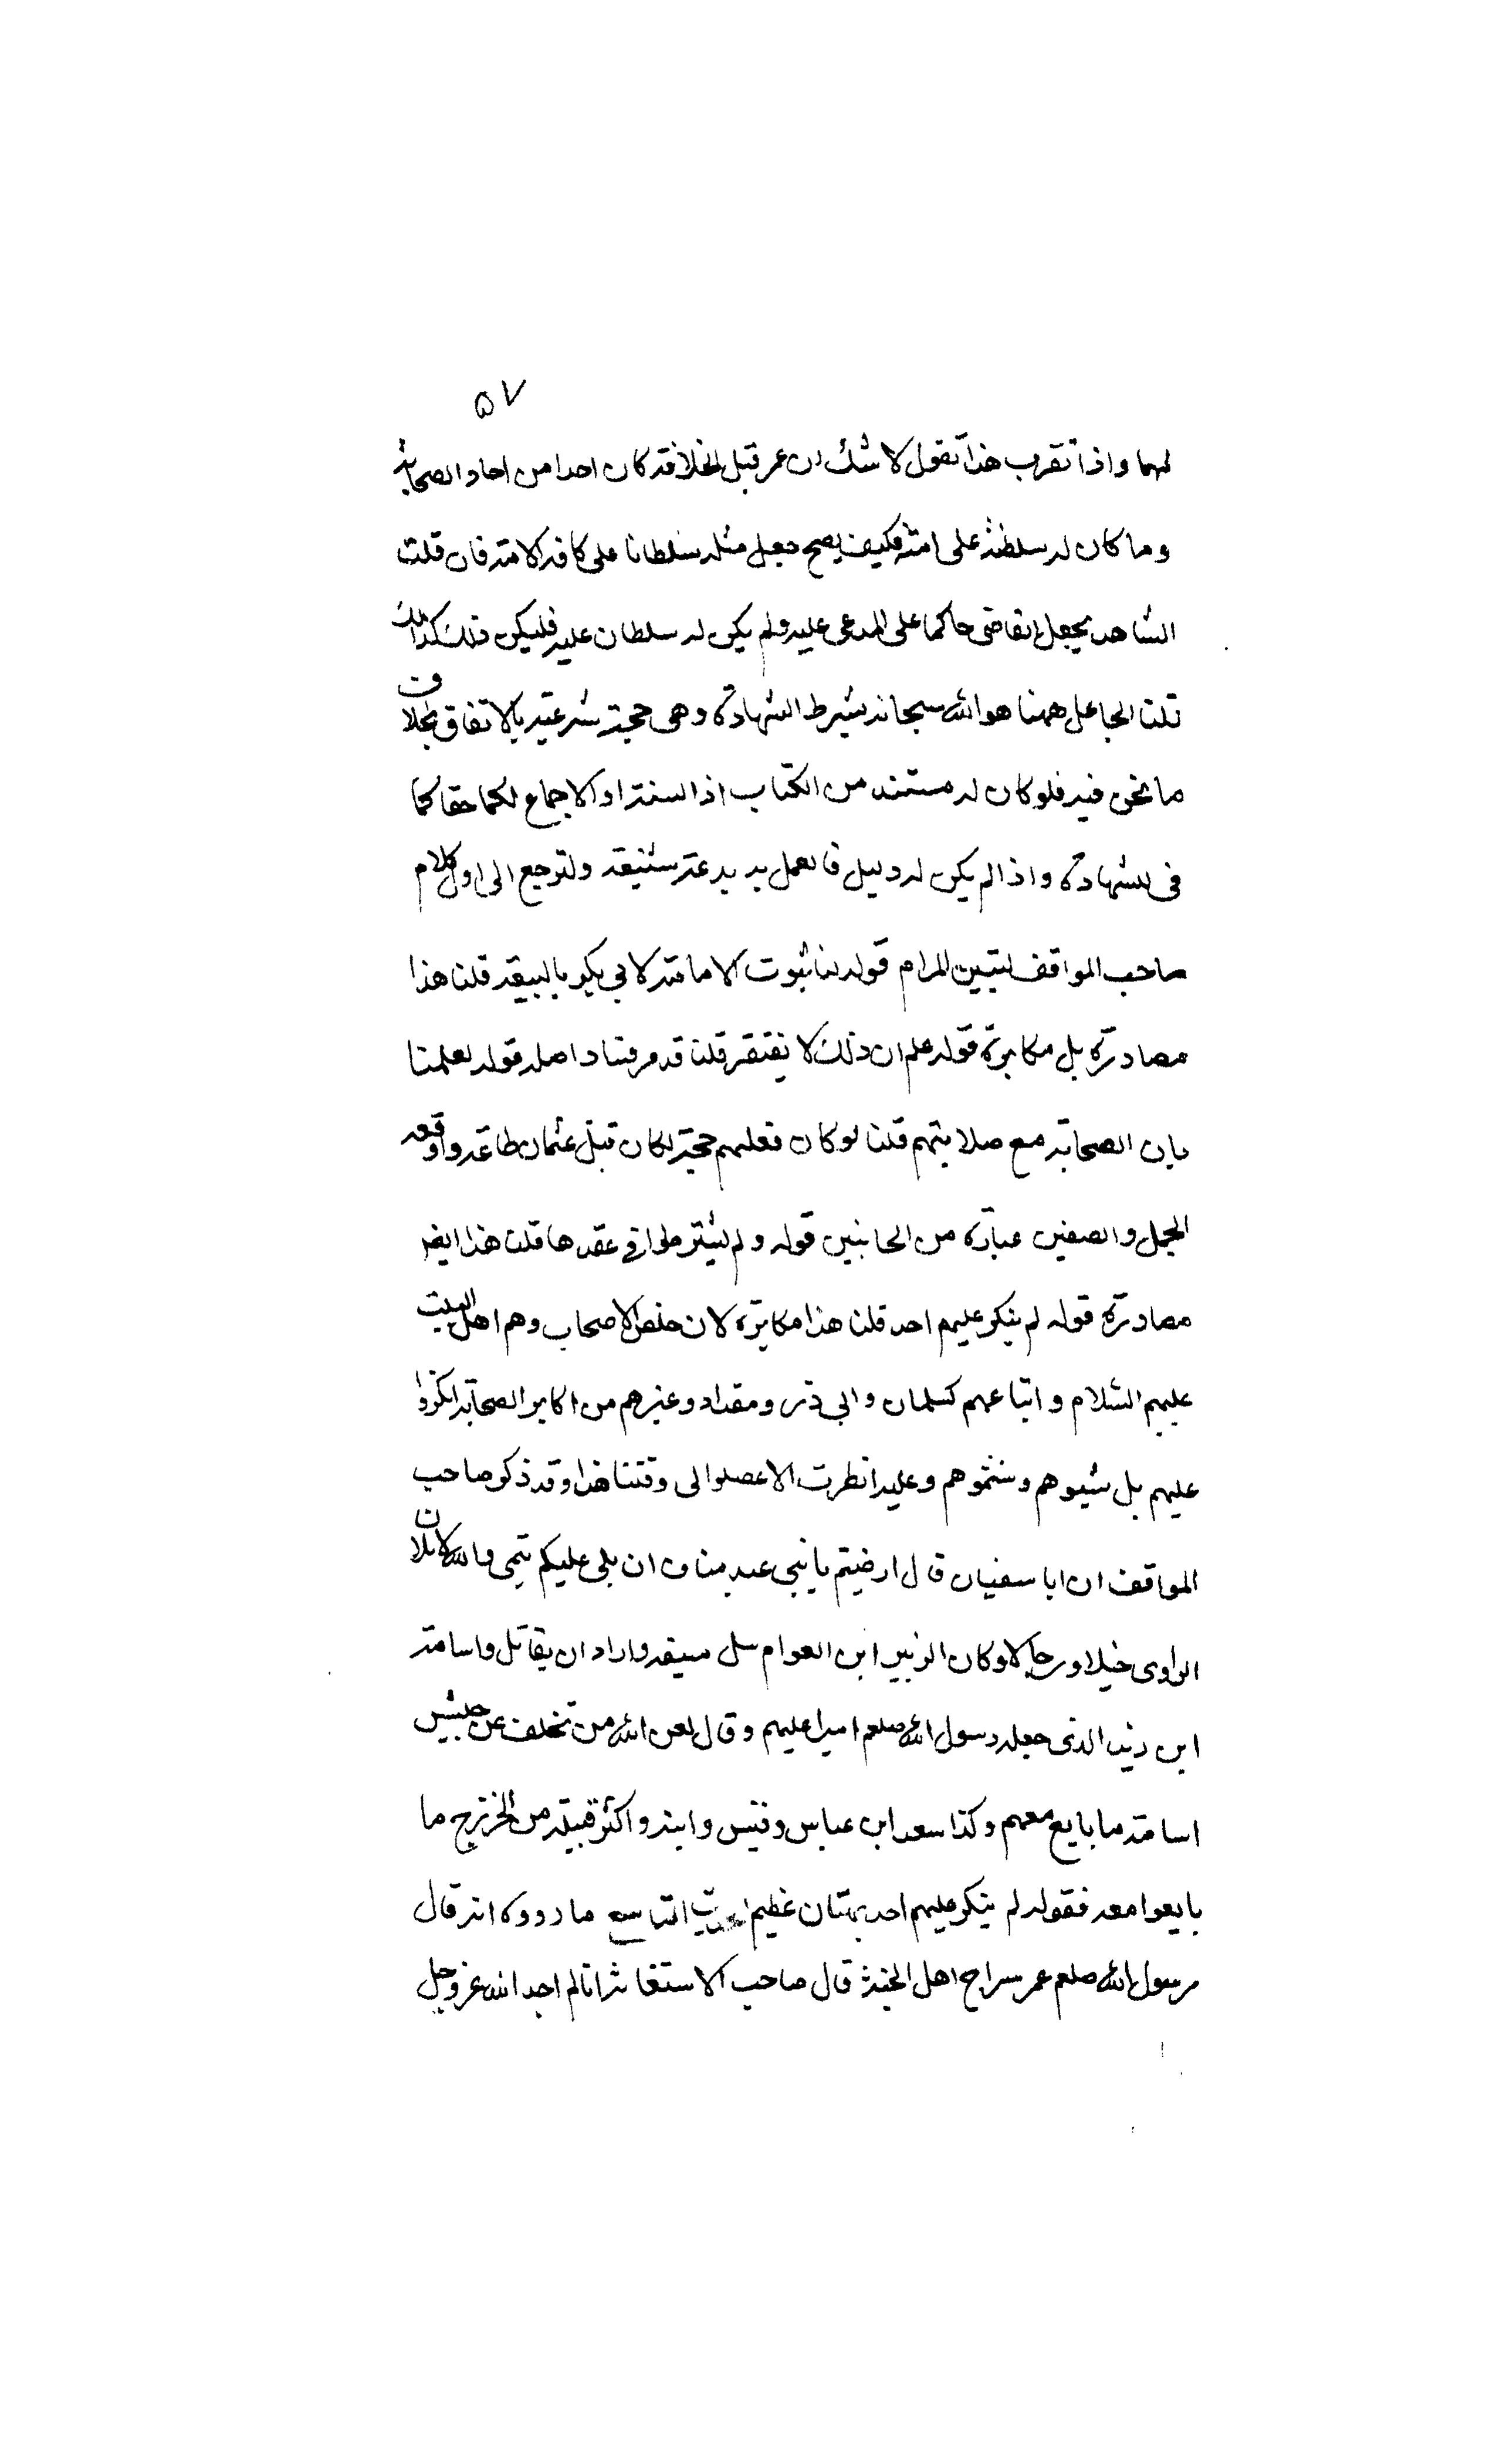 ۵۷
لهما واذا تقرب هذا تقول لا شك ان عمر قبل الخلافة كان احدا من احاد الصحابة
وما كان له سلطنة على امته فكيف يصح جعل مثله سلطانا على كافة الامة فان قلت
الشاهد يجعل القاضى حاكما على المدعى عليه ولم يكن له سلطان عليه فليكن قلت كذلك
قلنا الجاعل ههنا هو الله سبحانه بشرط الشهادة وهى حجة شرعية بالاتفاق بخلاف
ما نحن فيه فلو كان له مستند من الكتاب اذ السنة او الاجماع لكما حقا كما
فى الشهادة واذا لم يكن له دليل فالعمل به بدعة شنيعة ولترجع الى اول كلام
صاحب المواقف ليتبين المرام قوله لنا ثبوت الامامة لابي بكر بالبيعة قلنا هذا
مصادرة بل مكابرة قوله علم ان ذلك لا يفتقر قلنا قد مر فساد اصله قوله لعلمنا
بان الصحابة مع صلابتهم قلنا لو كان فعلهم حجة لكان قتل عثمان طاعة وواقعة
الجمل والصفين عبادة من الجانبين قوله ولم يشترطوا في عقدها قلنا هذا ايضا
مصادرة قوله لم ينكر عليهم احد قلنا هذا مكابرة لان خلص الاصحاب وهم اهل البيت
عليهم السلام واتباعهم كسلمان وابي ذر ومقداد وغيرهم من اكابر الصحابة انكروا
عليهم بل سبوهم وشتموهم وعليه انطرت الاعصار الى وقتنا هذا وقد ذكر صاحب
المواقف ان ابا سفيان قال ارضيتم يا بنى عبد مناف ان يلى عليكم تيمى والله لاملان
الوادى خيلا ورجالا وكان الزبير ابن العوام سل سيفه واراد ان يقاتل واسامة
ابن زيد الذى جعله رسول الله صلعم اميرا عليهم وقال لعن الله من تخلف عن جيش
اسامة ما بايع معهم وكذا سعد ابن عباس وقيس وابنه واكثر قبيلة من الخزرج ما
بايعوا معه فقوله لم ينكر عليهم احد بهتان عظيم التاسع ما رووه انه قال
رسول الله صلعم عمر سراج اهل الجنة قال صاحب الاستغاثة انا لم اجد الله عز وجل